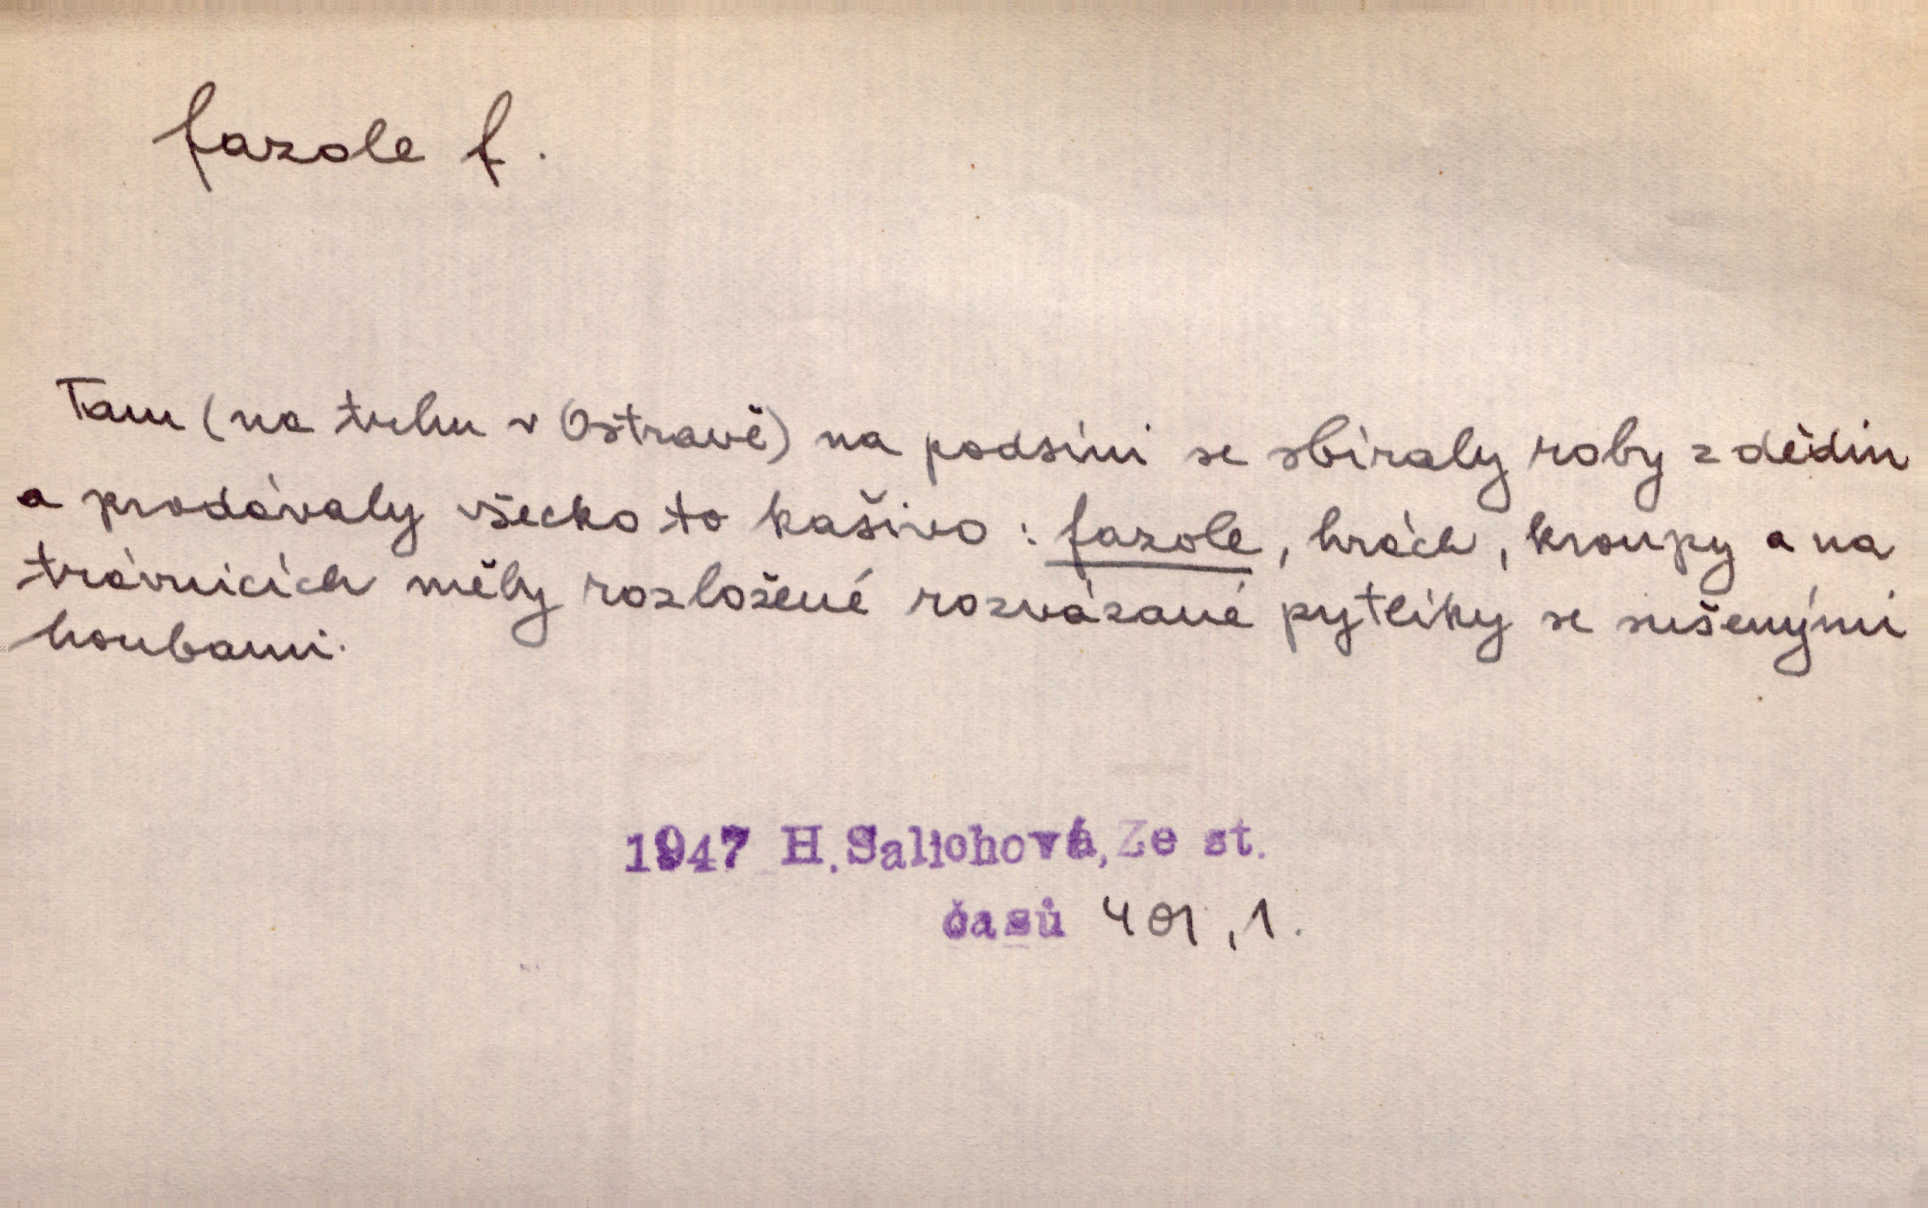 fazole f.
Tam (na trhu v Ostravě) na podsíni se sbíraly roby z dědin
a prodávaly všecko to kašivo : fazole, hrách, kroupy a na
trávnicích měly rozložené rozvázané pytlíky se sušenými
houbami.
1947 H. Salichová, Ze st.
časů 401,1.